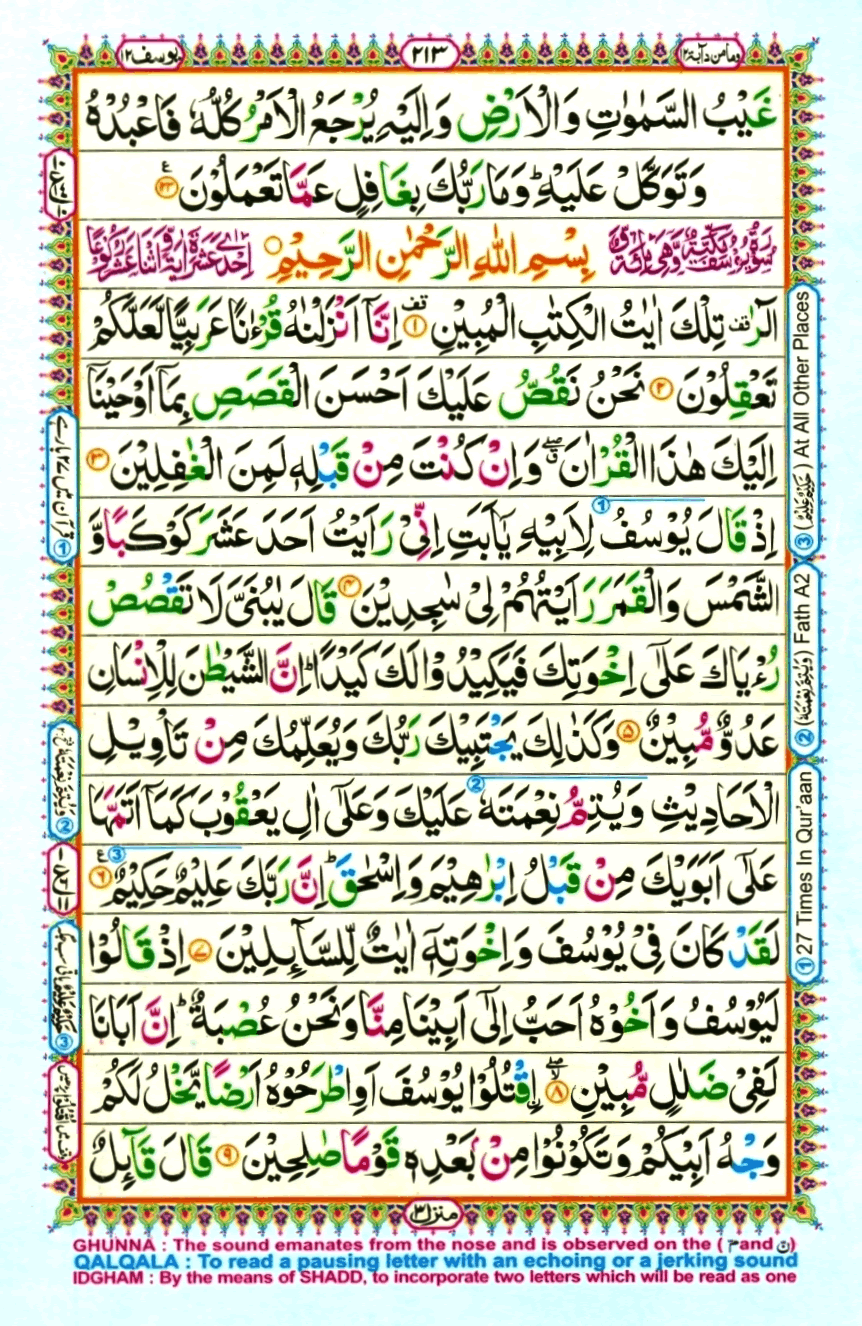 وما من دآبة ۱۲
۲۱۳
یوسف ۱۲
غَيْبُ السَّمٰوٰتِ وَالْاَرْضِ وَاِلَيْهِ يُرْجَعُ الْاَمْرُ كُلُّهٗ فَاعْبُدْهُ
وَتَوَكَّلْ عَلَيْهِ ؕ وَمَا رَبُّكَ بِغَافِلٍ عَمَّا تَعْمَلُوْنَ ۱۲۳
بِسْمِ اللّٰهِ الرَّحْمٰنِ الرَّحِيْمِ
الٓرٰ ۚ تِلْكَ اٰيٰتُ الْكِتٰبِ الْمُبِيْنِ ۱ اِنَّاۤ اَنْزَلْنٰهُ قُرْءٰنًا عَرَبِيًّا لَّعَلَّكُمْ
تَعْقِلُوْنَ ۲ نَحْنُ نَقُصُّ عَلَيْكَ اَحْسَنَ الْقَصَصِ بِمَاۤ اَوْحَيْنَاۤ
اِلَيْكَ هٰذَا الْقُرْاٰنَ ۖ وَاِنْ كُنْتَ مِنْ قَبْلِهٖ لَمِنَ الْغٰفِلِيْنَ ۳
اِذْ قَالَ يُوْسُفُ لِاَبِيْهِ يٰۤاَبَتِ اِنِّىْ رَاَيْتُ اَحَدَ عَشَرَ كَوْكَبًا وَّ
الشَّمْسَ وَالْقَمَرَ رَاَيْتُهُمْ لِىْ سٰجِدِيْنَ ۴ قَالَ يٰبُنَىَّ لَا تَقْصُصْ
رُءْيَاكَ عَلٰٓى اِخْوَتِكَ فَيَكِيْدُوْا لَكَ كَيْدًا ؕ اِنَّ الشَّيْطٰنَ لِلْاِنْسَانِ
عَدُوٌّ مُّبِيْنٌ ۵ وَكَذٰلِكَ يَجْتَبِيْكَ رَبُّكَ وَيُعَلِّمُكَ مِنْ تَاْوِيْلِ
الْاَحَادِيْثِ وَيُتِمُّ نِعْمَتَهٗ عَلَيْكَ وَعَلٰٓى اٰلِ يَعْقُوْبَ كَمَاۤ اَتَمَّهَا
عَلٰٓى اَبَوَيْكَ مِنْ قَبْلُ اِبْرٰهِيْمَ وَاِسْحٰقَ ؕ اِنَّ رَبَّكَ عَلِيْمٌ حَكِيْمٌ ۶
لَقَدْ كَانَ فِىْ يُوْسُفَ وَاِخْوَتِهٖۤ اٰيٰتٌ لِّلسَّآئِلِيْنَ ۷ اِذْ قَالُوْا
لَيُوْسُفُ وَاَخُوْهُ اَحَبُّ اِلٰٓى اَبِيْنَا مِنَّا وَنَحْنُ عُصْبَةٌ ؕ اِنَّ اَبَانَا
لَفِىْ ضَلٰلٍ مُّبِيْنِ ۸ اۨقْتُلُوْا يُوْسُفَ اَوِ اطْرَحُوْهُ اَرْضًا يَّخْلُ لَكُمْ
وَجْهُ اَبِيْكُمْ وَتَكُوْنُوْا مِنْ بَعْدِهٖ قَوْمًا صٰلِحِيْنَ ۹ قَالَ قَآئِلٌ
① 27 Times In Qur'aan
② (وَيُتِمُّ نِعْمَتَهٗ) Fath A2
③ (حَكِيْمٌ عَلِيْمٌ) At All Other Places
منزل ۳
GHUNNA : The sound emanates from the nose and is observed on the ( م and ن)
QALQALA : To read a pausing letter with an echoing or a jerking sound
IDGHAM : By the means of SHADD, to incorporate two letters which will be read as one